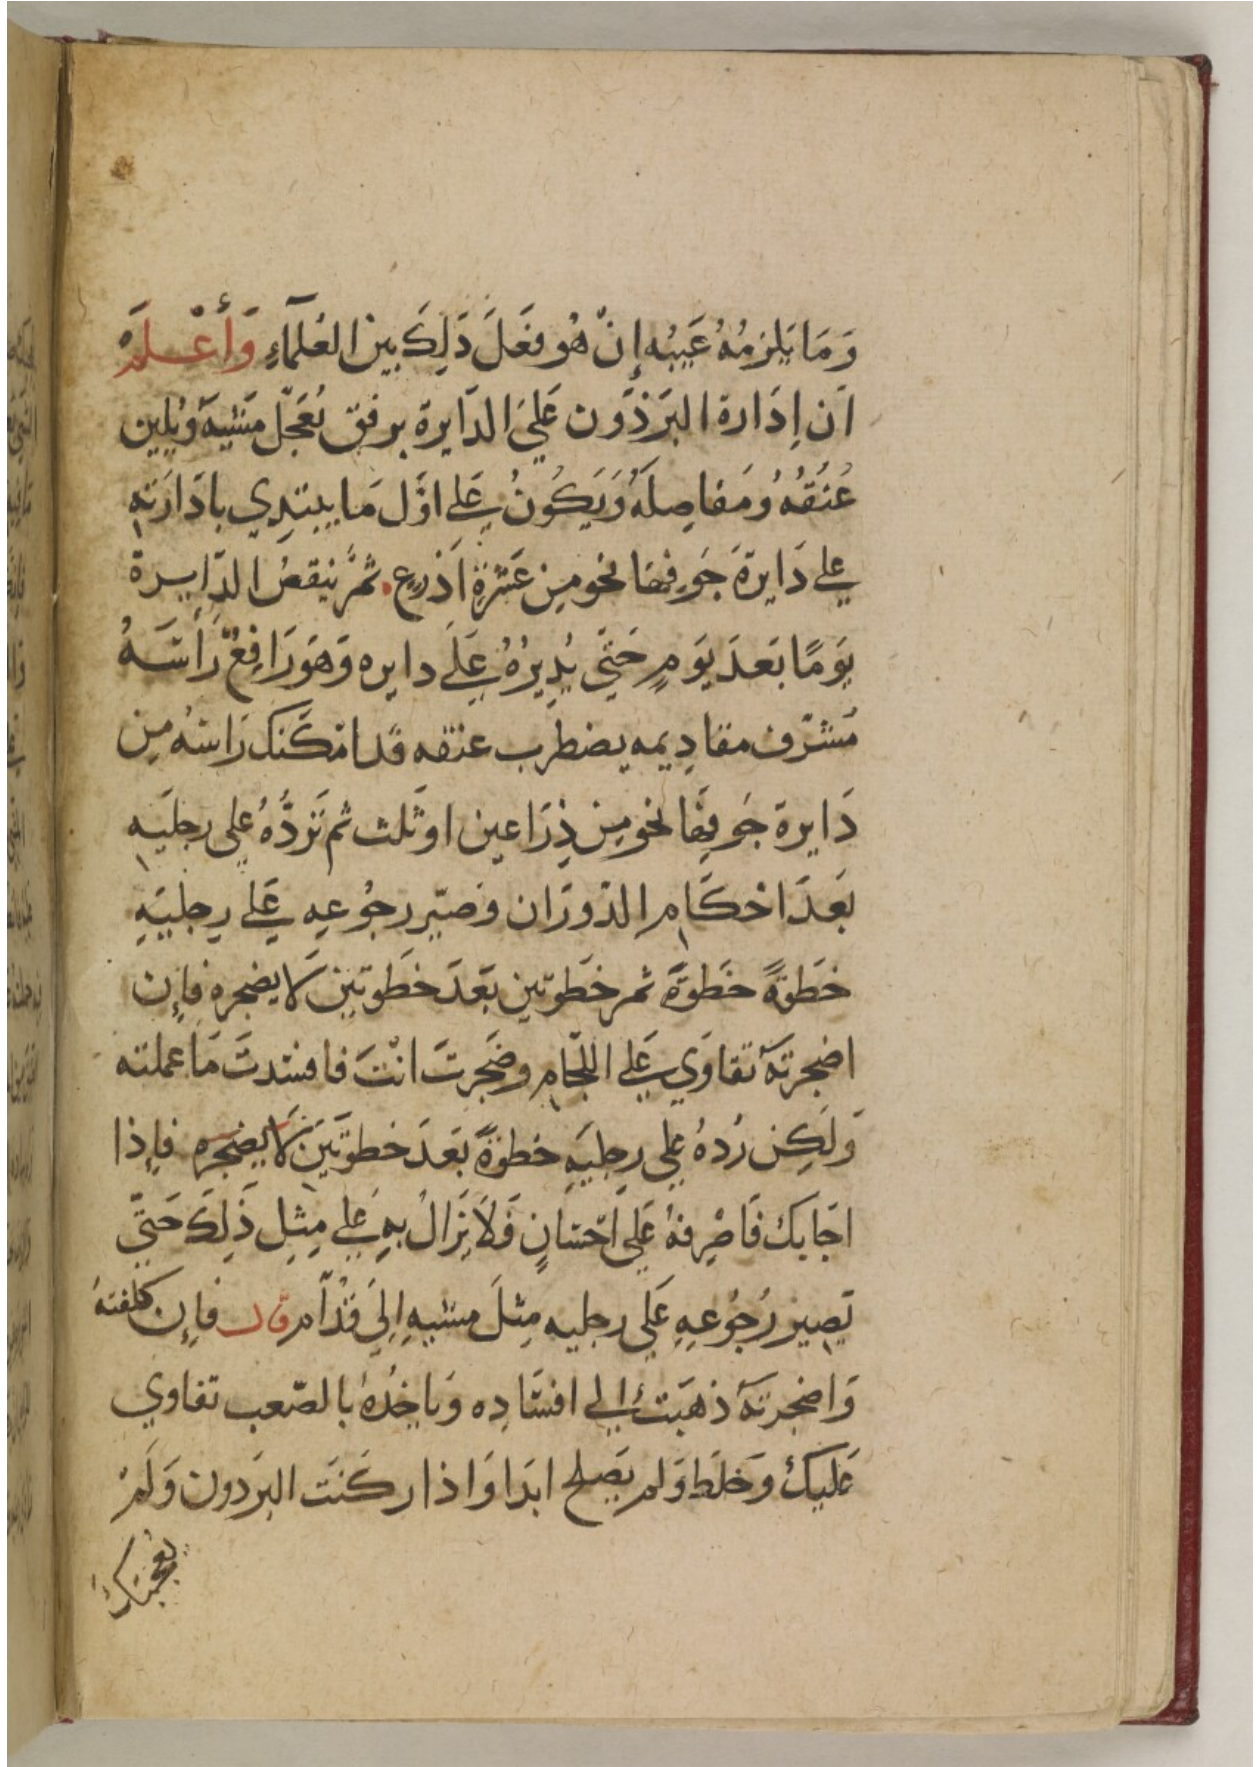 وَمَا يَلزمُهُ عَيبُه إِنْ هُو فعَلَ ذَلِكَ بين العُلمَآءِ وَأَعْلَمْ
اَن اِدَارة البَرذَون عَليَ الدَّايرة برفق تُعَجّل مَشيَهَ ويُلين
عُنُقُهُ ومَفاصِلَهُ وَيَكُونُ عَلي اوَّل مَا يبتدِي بادَارَتِه
علي دَايرَةَ جَوفها نحو مِن عَشرَةِ اَذرع. ثمَّ ينقصُ الدَّايرة
يَومًا بَعدَ يَومٍ حَتّي يُدِيرُهُ عَلَي دايره وَهَو رَافِعٌ رَأسَهُ
مُشرّف مقادِيمه يضطرب عنقه قدامكَنك رَاسُه مِن
دَايرة جَوفِهَا نحو مِن ذِرَاعين او ثَلث ثم تَردُّهُ علي رجليَه
بَعدَ احكَامِ الدّورَان وَصيّر رجُوعِه عَلي رِجليَهِ
خطَوةً خَطوَةً ثم خطَوتين بَعَدَ خطَوتَين لَا يضجره فإِن
اضجرتَهَ تقاوَي عَلي اللّجَام وضَجرتَ انْتَ فافسَدتَ مَا عملته
وَلَكِن رُدهُ علِي رِجليَهِ خطوَةً بَعَدَ خطوتَيَن لَا يضجره فإِذا
اجَابك فَاصْرِفهُ عَلي احْسَانٍ فَلَا يَزَالُ بهِ عَلي مِثِل ذَلِكَ حَتيّ
تصِير رُجُوعِهِ عَلي رجليه مِثلَ مشيهِ اِليَ قُدْاَم قال فإِن كلفتهُ
وَاضجرتَهَ ذهَبتَ الي افسَادِه وَياخُدهُ بالصّعب تقاوي
عَليَكَ وَخلَط وَلم يَصلح ابَدا وَاذا ركَبَت البَردون وَلَمْ
يعجبك